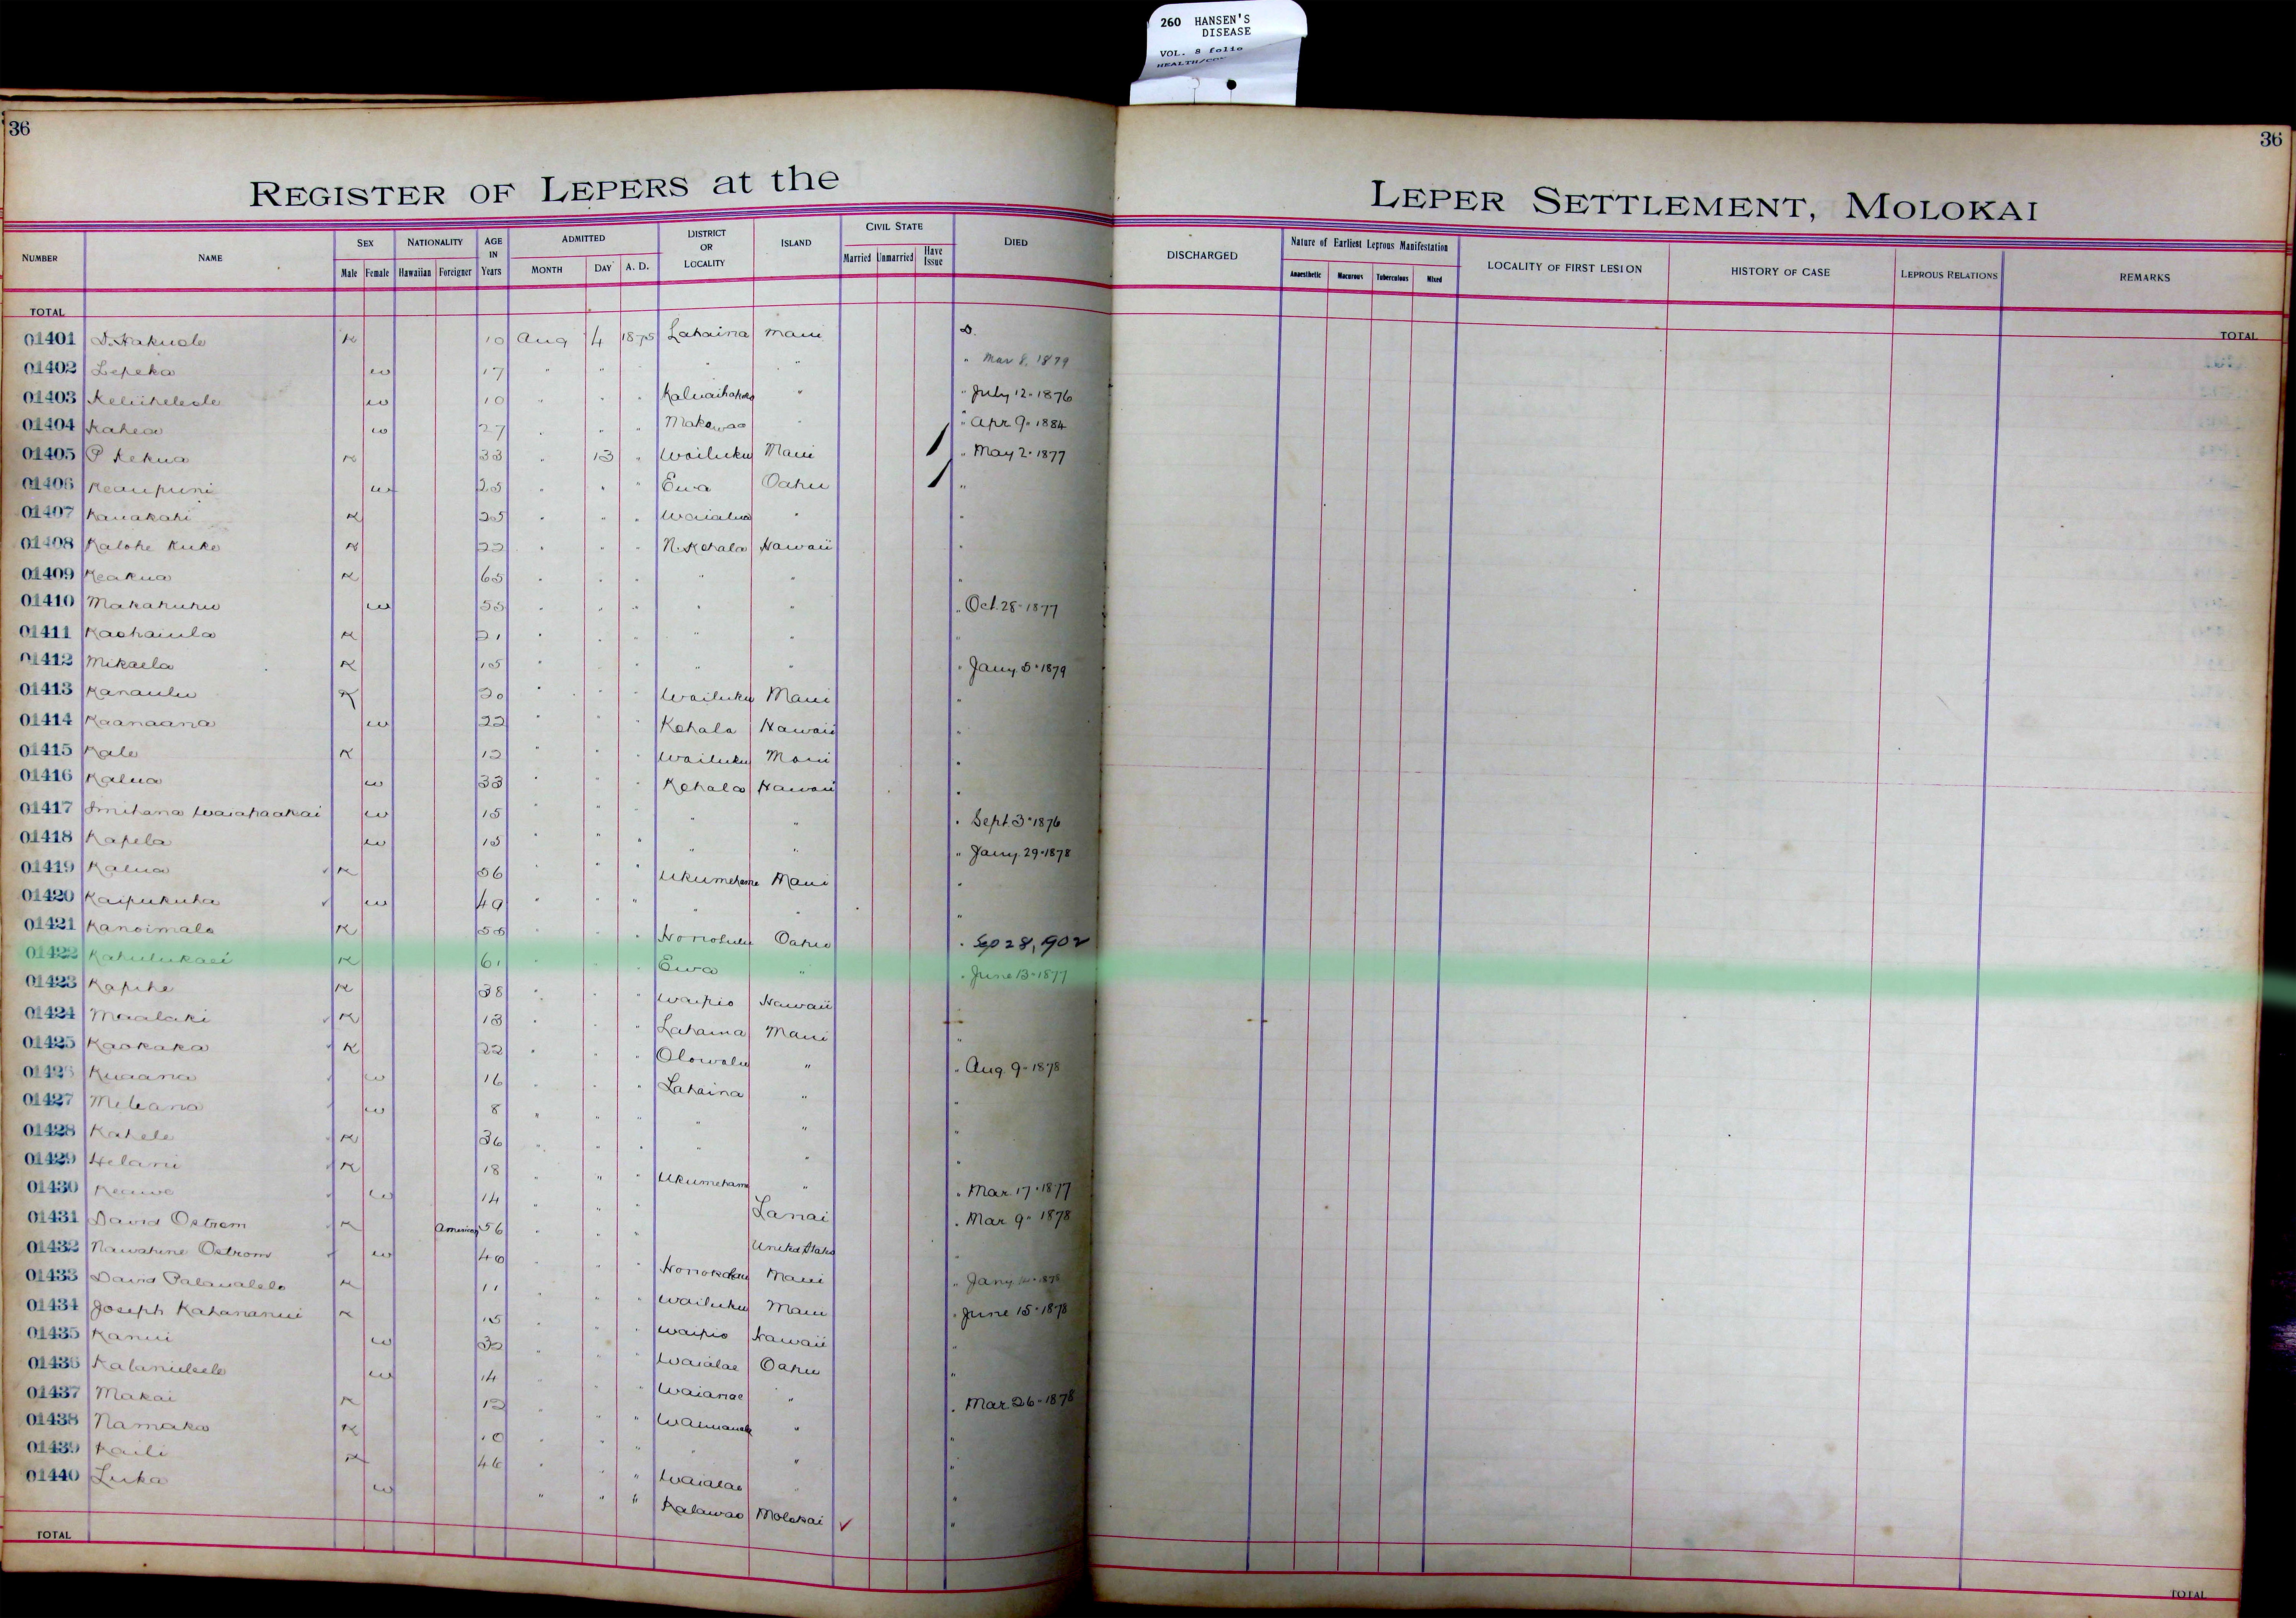 260 HANSEN'S
DISEASE
VOL. 8 folio
36
36
REGISTER OF LEPERS at the
LEPER SETTLEMENT, MOLOKAI
NUMBER NAME SEX Male Female NATIONALITY Hawaiian Foreigner AGE IN Years ADMITTED MONTH DAY A. D. DISTRICT OR LOCALITY ISLAND CIVIL STATE Married Unmarried Have Issue DIED
DISCHARGED Nature of Earliest Leprous Manifestation Anaesthetic Macurous Tuberculous Mixed LOCALITY OF FIRST LESION HISTORY OF CASE LEPROUS RELATIONS REMARKS
TOTAL
TOTAL
01401 D. Hakuole K 10 Aug 4 1875 Lahaina Maui D.
01402 Lepeka w 17 " " " " " Mar 8, 1879
01403 w 10 " " " " " July 12-1876
01404 Kahea w 27 " " " Makawao " " Apr 9-1884
01405 P Kekua K 33 " 13 " Wailuku Maui " May 2-1877
01406 Keaupuni w 25 " " " Ewa Oahu "
01407 Kauakahi K 25 " " " Waialua " "
01408 Kalohe Kuke K 22 " " " N. Kohala Hawaii "
01409 Keakua K 65 " " " " " "
01410 Makahuhu w 55 " " " " " " Oct. 28-1877
01411 Kaohaiula K 21 " " " " " "
01412 Mikaela K 15 " " " " " " Jany. 5-1879
01413 Kanaulu K 20 " " " Wailuku Maui "
01414 Kaanaana w 22 " " " Kohala Hawaii "
01415 Kale K 12 " " " Wailuku Maui "
01416 Kalua w 33 " " " Kohala Hawaii "
01417 w 15 " " " " " " Sept. 3-1876
01418 Kapela w 15 " " " " " " Jany. 29-1878
01419 Kalua K 56 " " " Ukumehame Maui "
01420 Kaipukuha w 49 " " " " " "
01421 Kanoimalo K 58 " " " Honolulu Oahu " Sep 28, 1902
01422 K 61 " " " Ewa " " June 13-1877
01423 Kapihe K 38 " " " Waipio Hawaii
01424 Maalaki K 13 " " " Lahaina Maui "
01425 Kaokaka K 22 " " " Olowalu " " Aug. 9-1878
01426 Kuaana w 16 " " " Lahaina " "
01427 Meleana w 8 " " " " " "
01428 Kahele K 36 " " " " " "
01429 Helani K 18 " " " Ukumehame " " Mar. 17-1877
01430 Keawe w 14 " " " Lanai " Mar. 9-1878
01431 David Ostrom K American 56 " " " United States "
01432 Nawahine Ostrom w 40 " " " Honokohau Maui " Jany.
01433 David K 11 " " " Wailuku Maui " June 15-1878
01434 Joseph Kahananui K 15 " " " Waipio Hawaii "
01435 Kanui w 32 " " " Waialae Oahu "
01436 w 14 " " " Waianae " " Mar. 26-1878
01437 Makai K 12 " " " " "
01438 Namaka K 10 " " " " " "
01439 Kaili K 46 " " " Waialae " "
01440 Luka w " " " Kalawao Molokai "
TOTAL
TOTAL